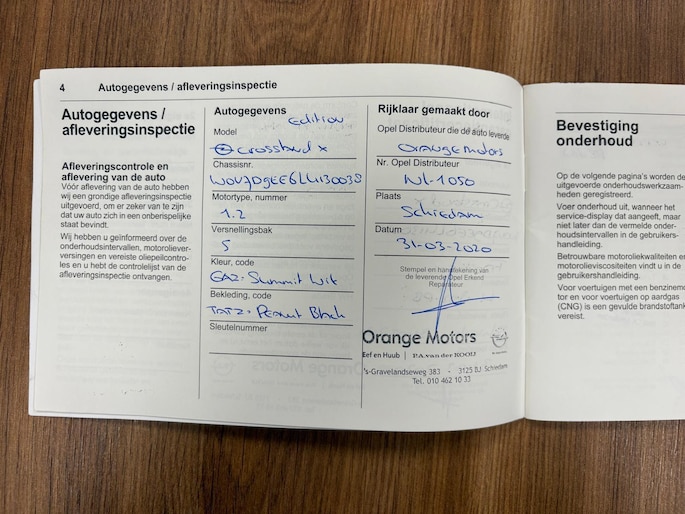 4 Autogegevens / afleveringsinspectie
Autogegevens /
afleveringsinspectie
Afleveringscontrole en
aflevering van de auto
Vóór aflevering van de auto hebben
wij een grondige afleveringsinspectie
uitgevoerd, om er zeker van te zijn
dat uw auto zich in een onberispelijke
staat bevindt.
Wij hebben u geïnformeerd over de
onderhoudsintervallen, motoroliever-
versingen en vereiste oliepeilcontro-
les en u hebt de controlelijst van de
afleveringsinspectie ontvangen.
Autogegevens
Edition
Model
crossland x
Chassisnr.
Motortype, nummer
1.2
Versnellingsbak
5
Kleur, code
GAZ- Summit Wit
Bekleding, code
Black
Sleutelnummer
Rijklaar gemaakt door
Opel Distributeur die de auto leverde
Orange motors
Nr. Opel Distributeur
NL-1050
Plaats
Schiedam
Datum
31-03-2020
Stempel en handtekening van
de leverende Opel Erkend
Reparateur
Orange Motors
Eef en Huub | P.A. van der KOOIJ
's-Gravelandseweg 383 - 3125 BJ Schiedam
Tel. 010 462 10 33
Bevestiging
onderhoud
Op de volgende pagina's worden de
uitgevoerde onderhoudswerkzaam-
heden geregistreerd.
Voer onderhoud uit, wanneer het
service-display dat aangeeft, maar
niet later dan de vermelde onder-
houdsintervallen in de gebruikers-
handleiding.
Betrouwbare motoroliekwaliteiten en
motorolieviscositeiten vindt u in de
gebruikershandleiding.
Voor voertuigen met een benzinemo
tor en voor voertuigen op aardgas
(CNG) is een gevulde brandstoftank
vereist.